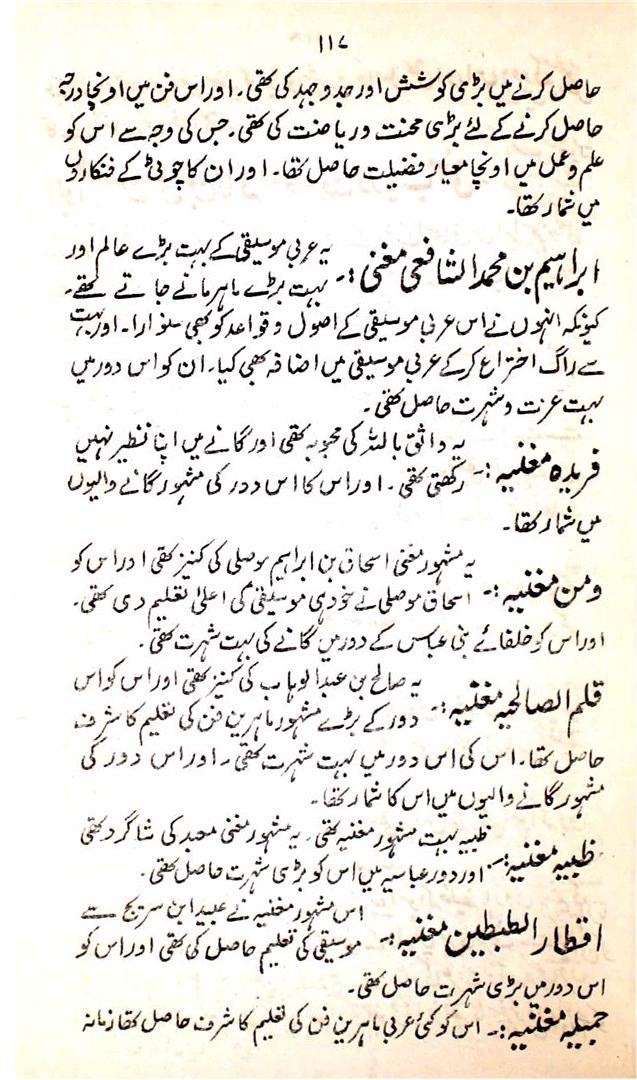 ۱۱۷
حاصل کرنے میں بڑی کوشش اور جد و جہد کی تھی۔ اور اس فن میں اونچا درجہ
حاصل کرنے کے لئے بڑی محنت و ریاضت کی تھی۔ جس کی وجہ سے اس کو
علم و عمل میں اونچا معیار فضیلت حاصل تھا۔ اور ان کا چوٹی کے فنکاروں
میں شمار تھا۔
ابراہیم بن محمد الشافعی مغنی :۔ یہ عربی موسیقی کے بہت بڑے عالم اور
بہت بڑے ماہر مانے جاتے تھے۔
کیونکہ انہوں نے اس عربی موسیقی کے اصول و قواعد کو بھی سنوارا۔ اور بہت
سے راگ اختراع کر کے عربی موسیقی میں اضافہ بھی کیا۔ ان کو اس دور میں
بہت عزت و شہرت حاصل تھی۔
فریدہ مغنیہ :۔ یہ واثق باللہ کی محبوبہ تھی اور گانے میں اپنا نظیر نہیں
رکھتی تھی۔ اور اس کا اس دور کی مشہور گانے والیوں
میں شمار تھا۔
ومن مغنیہ :۔ یہ مشہور مغنی اسحاق بن ابراہیم موصلی کی کنیز تھی اور اس کو
اسحاق موصلی نے خود ہی موسیقی کی اعلیٰ تعلیم دی تھی۔
اور اس کو خلفائے بنی عباس کے دور میں گانے کی بہت شہرت تھی۔
قلم الصالحیہ مغنیہ :۔ یہ صالح بن عبدالوہاب کی کنیز تھی اور اس کو اس
دور کے بڑے مشہور ماہرین فن کی تعلیم کا شرف
حاصل تھا۔ اس کی اس دور میں بہت شہرت تھی۔ اور اس دور کی
مشہور گانے والیوں میں اس کا شمار تھا۔
ظبیہ مغنیہ :۔ ظبیہ بہت مشہور مغنیہ تھی۔ یہ مشہور مغنی معبد کی شاگرد تھی
اور دور عباسیہ میں اس کو بڑی شہرت حاصل تھی۔
اقطار الطبطین مغنیہ :۔ اس مشہور مغنیہ نے عبید ابن سریج سے
موسیقی کی تعلیم حاصل کی تھی اور اس کو
اس دور میں بڑی شہرت حاصل تھی۔
جمیلہ مغنیہ :۔ اس کو کئی عربی ماہرین فن کی تعلیم کا شرف حاصل تھا زمانہ